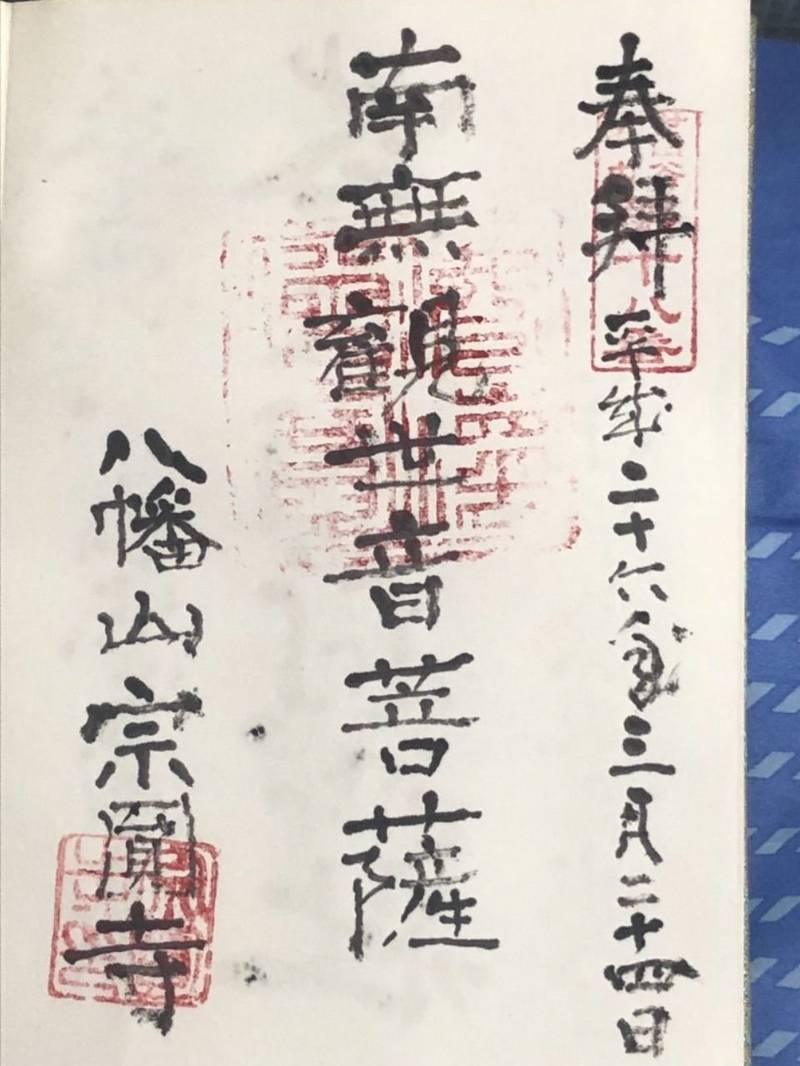 奉拜 平成二十六年三月二十四日
南無觀世音菩薩
八幡山宗圓寺